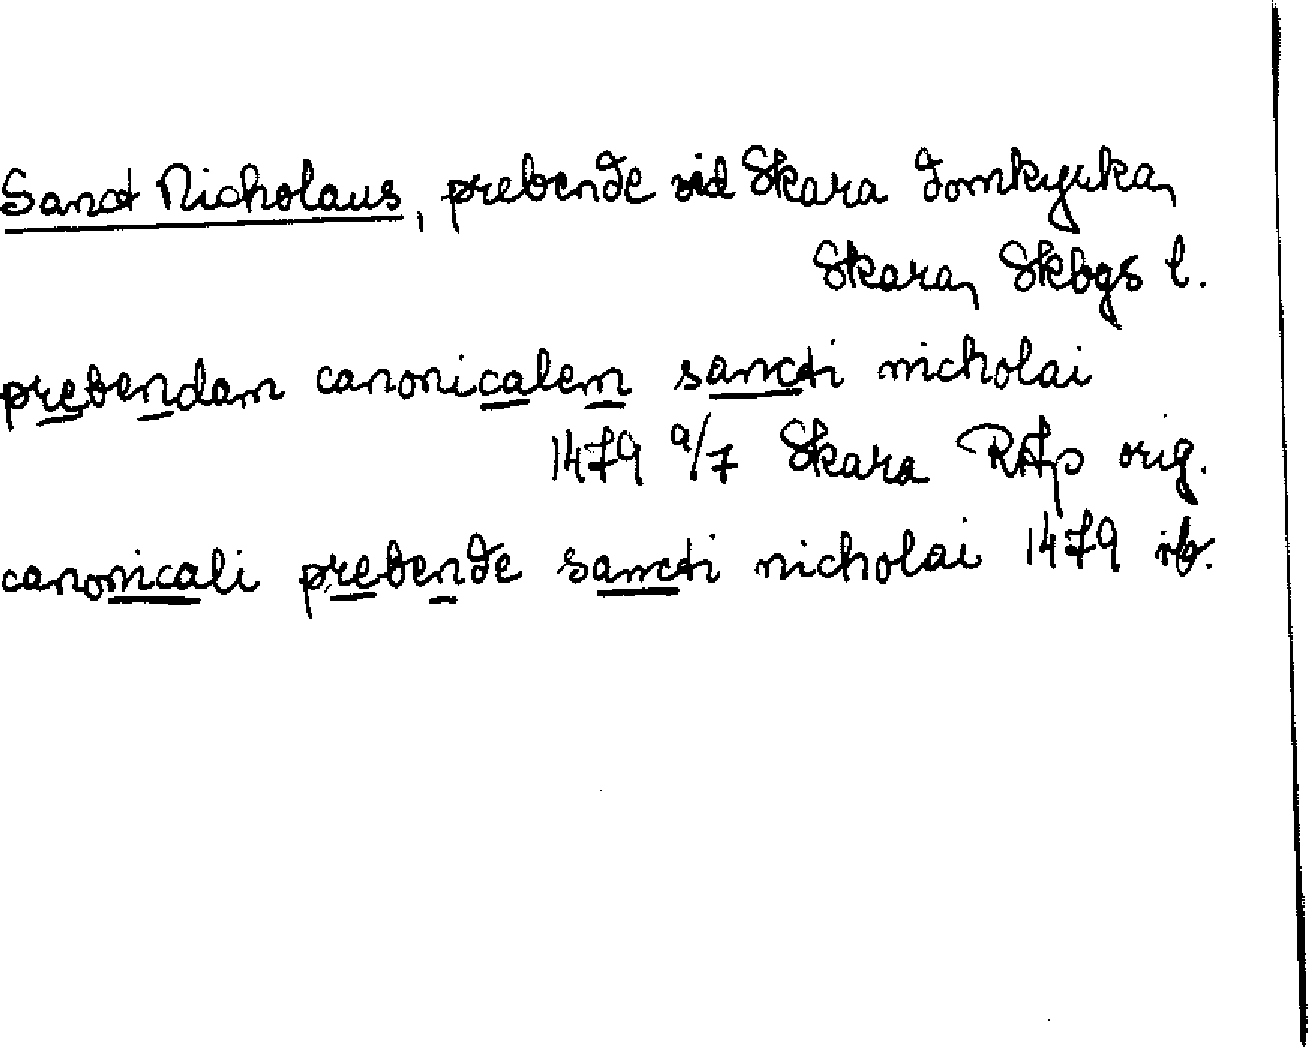 Sanct Nicholaus, prebende vid Skara domkyrka,
Skara, Skbgs l.
prebendam canonicalem sancti nicholai
1479 9/7 Skara RAp orig.
canonicali prebende sancti nicholai 1479 ib.